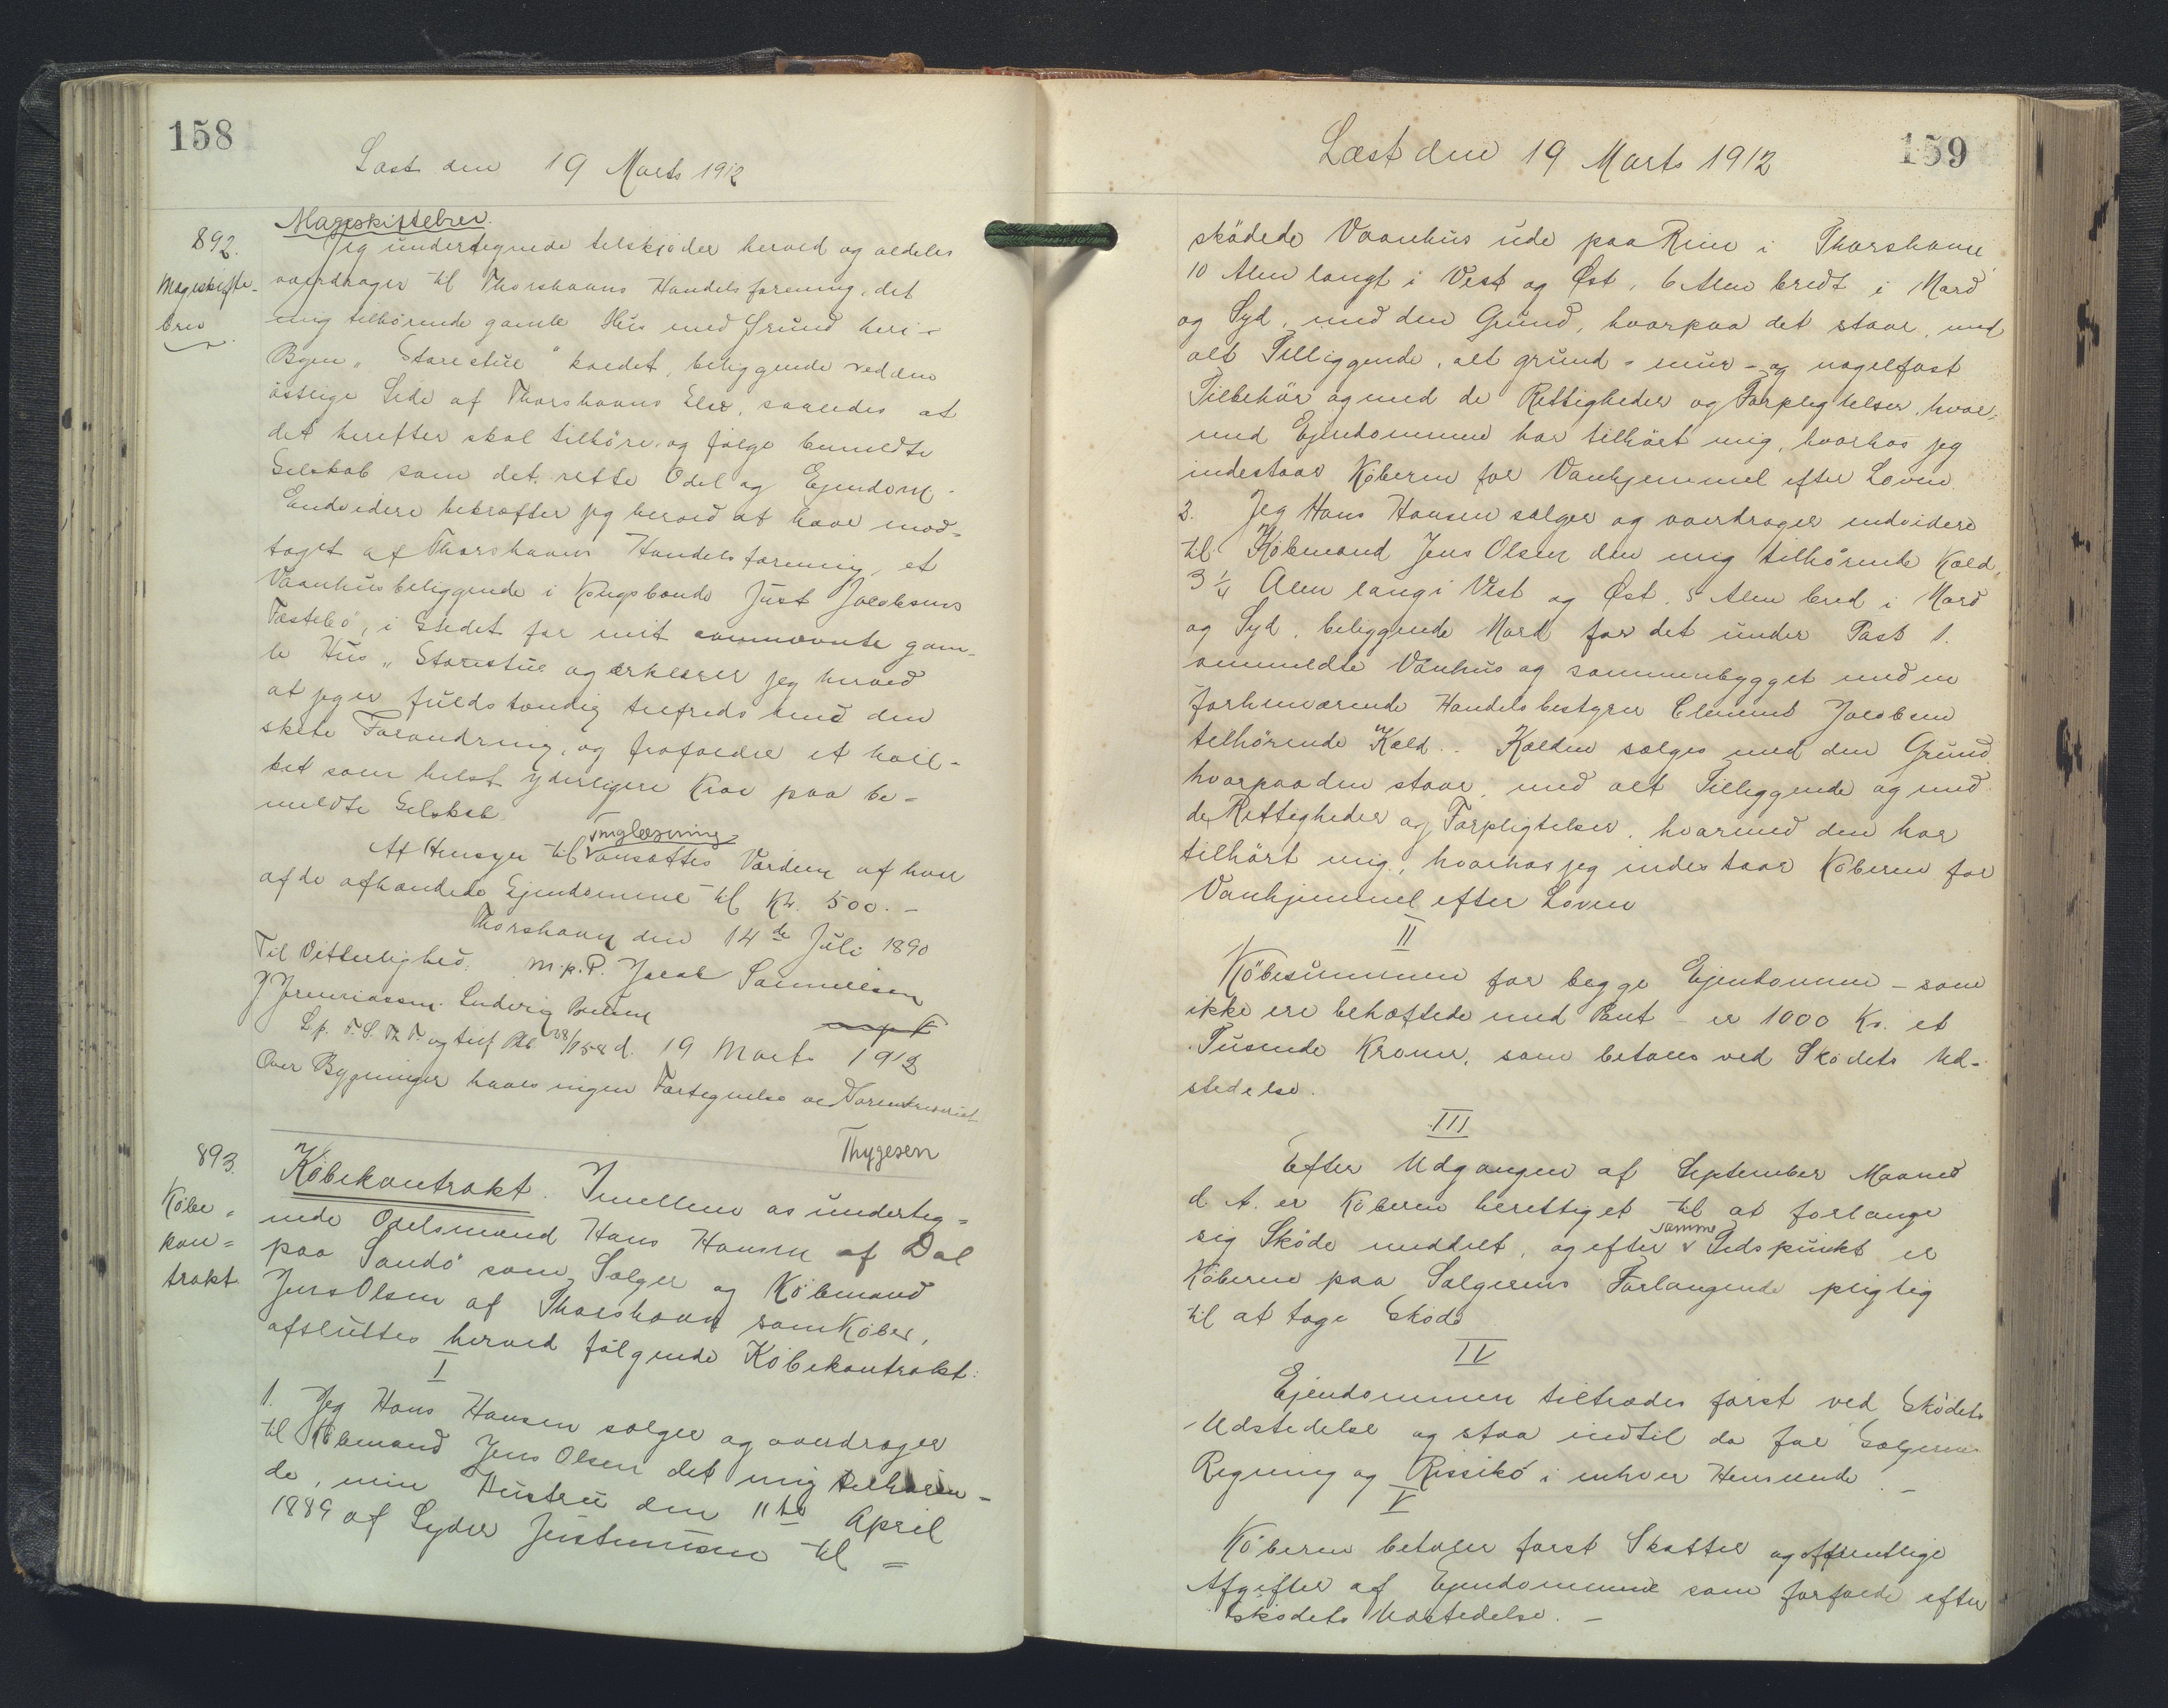 158
Læst den 19 Marts 1912
892.
Mageskifte-
brev
Mageskiftebrev.
Jeg undertegnede tilskjøder herved og aldeles
overdrager til Thorshavns Handelsforening, det
mig tilhørende gamle Hus med Grund heri
Byen "Starestue" kaldet, beliggende ved den
østlige Side af Thorshavns Elv, saaledes at
det herefter skal tilhøre og følge bemeldte
Selskab som det rette Odel og Ejendom.
Endvidere bekræfter jeg herved at have mod-
taget af Thorshavns Handelsforening, et
Vaanhus beliggende i Kongsbonde Just Jacobsens
Fæstebö, i Stedet for mit ovennævnte gam-
le Hus "Starestue og erklærer jeg herved
at jeg er fuldstændig tilfreds med den
skete Forandring, og frafalder et hvil-
ket som helst yderligere Krav paa be-
meldte Selskab
At Hensyn til Tinglæsning ansættes Værdien af hver
af de afhændede Ejendomme til Kr. 500.-
Thorshavn den 14de Juli 1890
Til Vitterlighed. m.p.P. Jacob Samuelsen
Ludvig Poulsen
19 Marts 1912
Over Bygninger haves ingen Fortegnelse ved Sorenskriveriet
Thygesen
893.
Købe-
kon-
trakt
Købekontrakt. Imellem os underteg-
nede Odelsmand Hans Hansen af Dal
paa Sandö som Sælger og Købmand
Jens Olsen af Thorshavn som Køber,
afsluttes herved følgende Købekontrakt:
I
1. Jeg Hans Hansen sælger og overdrager
til Købmand Jens Olsen det mig tilhøren-
de, min Hustru den 11te April
1889 af Syder Justinussen til-
159
Læst den 19 Marts 1912
sködede Vaanhus ude paa Rein i Thorshavn,
10 Alen langt i Vest og Øst, 6 Alen bredt i Nord
og Syd, med den Grund, hvorpaa det staar, med
alt Tilliggende, alt grund- mur- og nagelfast
Tilbehör og med de Rettigheder og Forpligtelser, hvor-
med Ejendommen har tilhört mig, hvorhos jeg
indestaar Köberen for Vanhjemmel efter Loven
2. Jeg Hans Hansen sælger og overdrager endvidere
til Købmand Jens Olsen den mig tilhørende Kæld,
3 1/4 Alen lang i Vest og Øst, 5 Alen bred i Nord
og Syd, beliggende Nord for det under Post 1.
ommeldte Vanhus og sammenbygget med en
forhenværende Handelsbestyrer Clement Jacobsen
tilhörende Kæld.. Kælden sælges med den Grund
hvorpaa den staar, med alt Tilliggende og med
de Rettigheder og Forpligtelser, hvormed den har
tilhört mig, hvorhos jeg indestaar Köberen for
Vanhjemmel efter Loven
II
Köbesummen for begge Ejendomme - som
ikke ere behæftede med Pant - er 1000 Kr. et
Tusende Kroner, som betales ved Skødets Ud-
stedelse.
III
Efter Udgangen af September Maaned
d. A. er Köberen berettiget til at forlange
sig Sköde meddelt, og efter samme Tidspunkt er
Köberen paa Sælgerens Forlangende pligtig
til at tage Sköde
IV
Ejendommen tiltrædes först ved Sködets
Udstedelse og staa indtil da for Sælgerens
Regning og Rissiko i enhver Henseende.-
V
Köberen betaler först Skatter og offentlige
Afgifter af Ejendommene som forfalde efter
Sködets Udstedelse.-